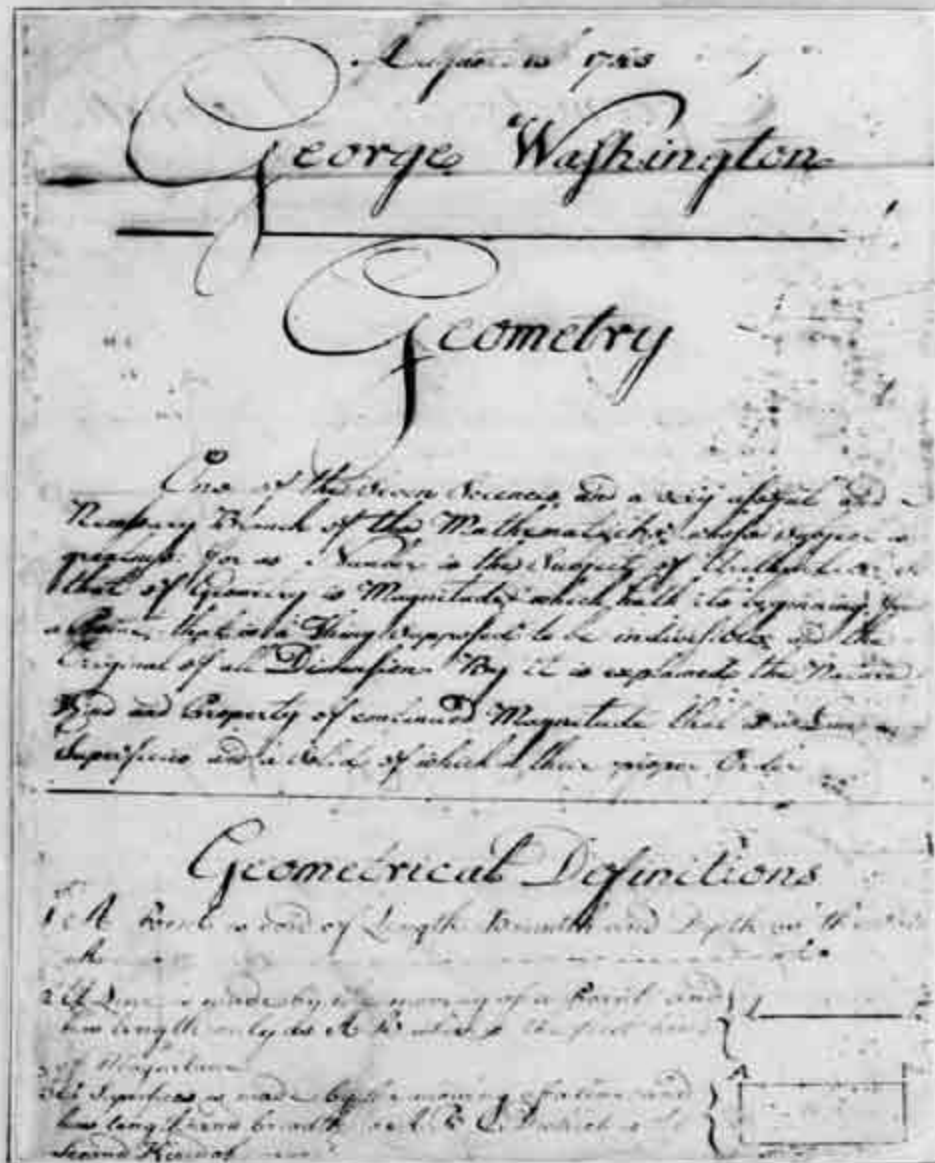 August 1745
George Washington
Geometry
One of the Seven Sciences and a very usefull and
Necessary Branch of the Mathematicks whose subject is
for as Number is the Subject of Arithmetick so
that of Geometry is Magnitude which hath its beginning from
a Point that is a Thing supposed to be indivisible and the
Original of all Dimension By it is explained the Nature
Kind and Property of continued Magnitude that is a Line a
Superficies and a Solid of which in their proper Order
Geometrical Definitions
1 A Point is void of Length Breadth and Depth as
2 A Line is made by the moving of a Point and
has length only as A B the first kind
of Magnitude
3 A Superficies is made by the moving of a Line and
has length and breadth as A B C D
Second Kind of